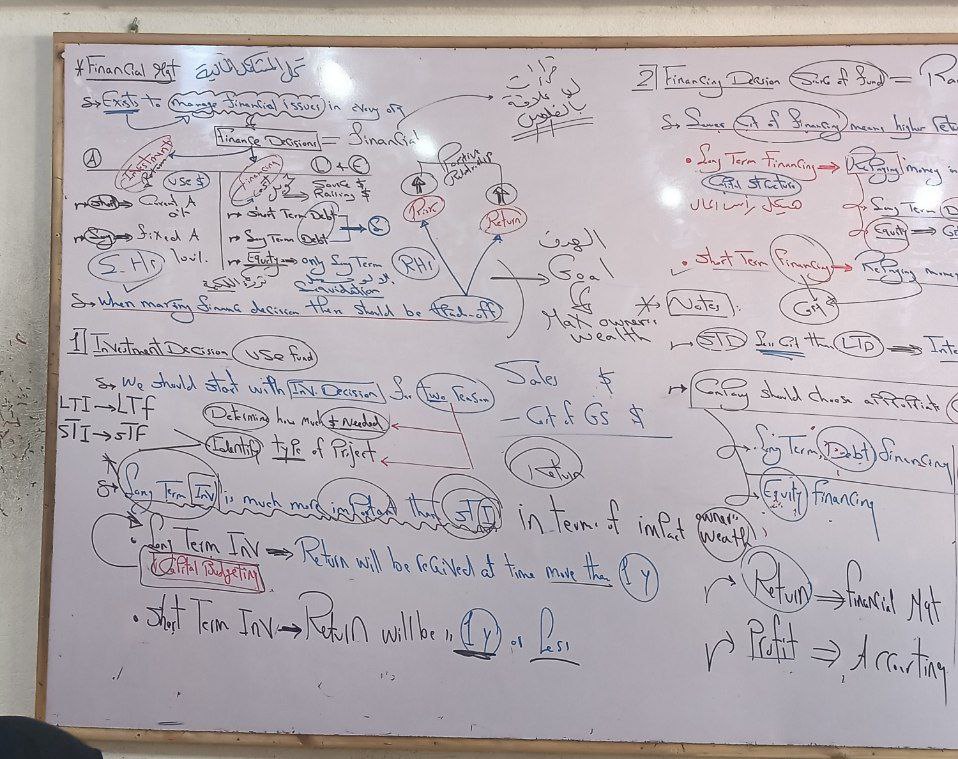 * Financial Mgt
Exists to manage financial issues in
Finance Decisions = financial
قرارات
لها علاقة
بالفلوس
A
Investment
use $
Short → Current A
Long → fixed A
S.Hs
Financing
L + E
Source $
Raising $
Short Term Debt
Long Term Debt
Equity → only Long Term
Liquidation
Positive
Relationship
Risk
Return
RHS
الهدف
Goal
Max owner's
wealth
When making finance decision there should be trad-off
1 Investment Decision use fund
We should start with Inv. Decision for two reason
LTI → LTf
STI → STf
Determine how much $ Needed
Identify type of Project
Sales $
- Cost of GS $
Return
Long Term Inv is much more important than STI in term of impact owner's wealth
• Long Term Inv ⇒ Return will be received at time more than 1 y
Capital Budgeting
• Short Term Inv → Return will be " 1 y or Less
2 Financing Decision fund =
Lower Cost of financing means higher
• Long Term Financing → Repaying money
Capital structure
هيكل رأس المال
Long Term
Equity
• Short Term Financing → Repaying money
* Notes:
STD less Cost than LTD ⇒
Company should choose appropriate
Long Term Debt financing
Equity financing
Return ⇒ financial Mgt
Profit ⇒ Accounting